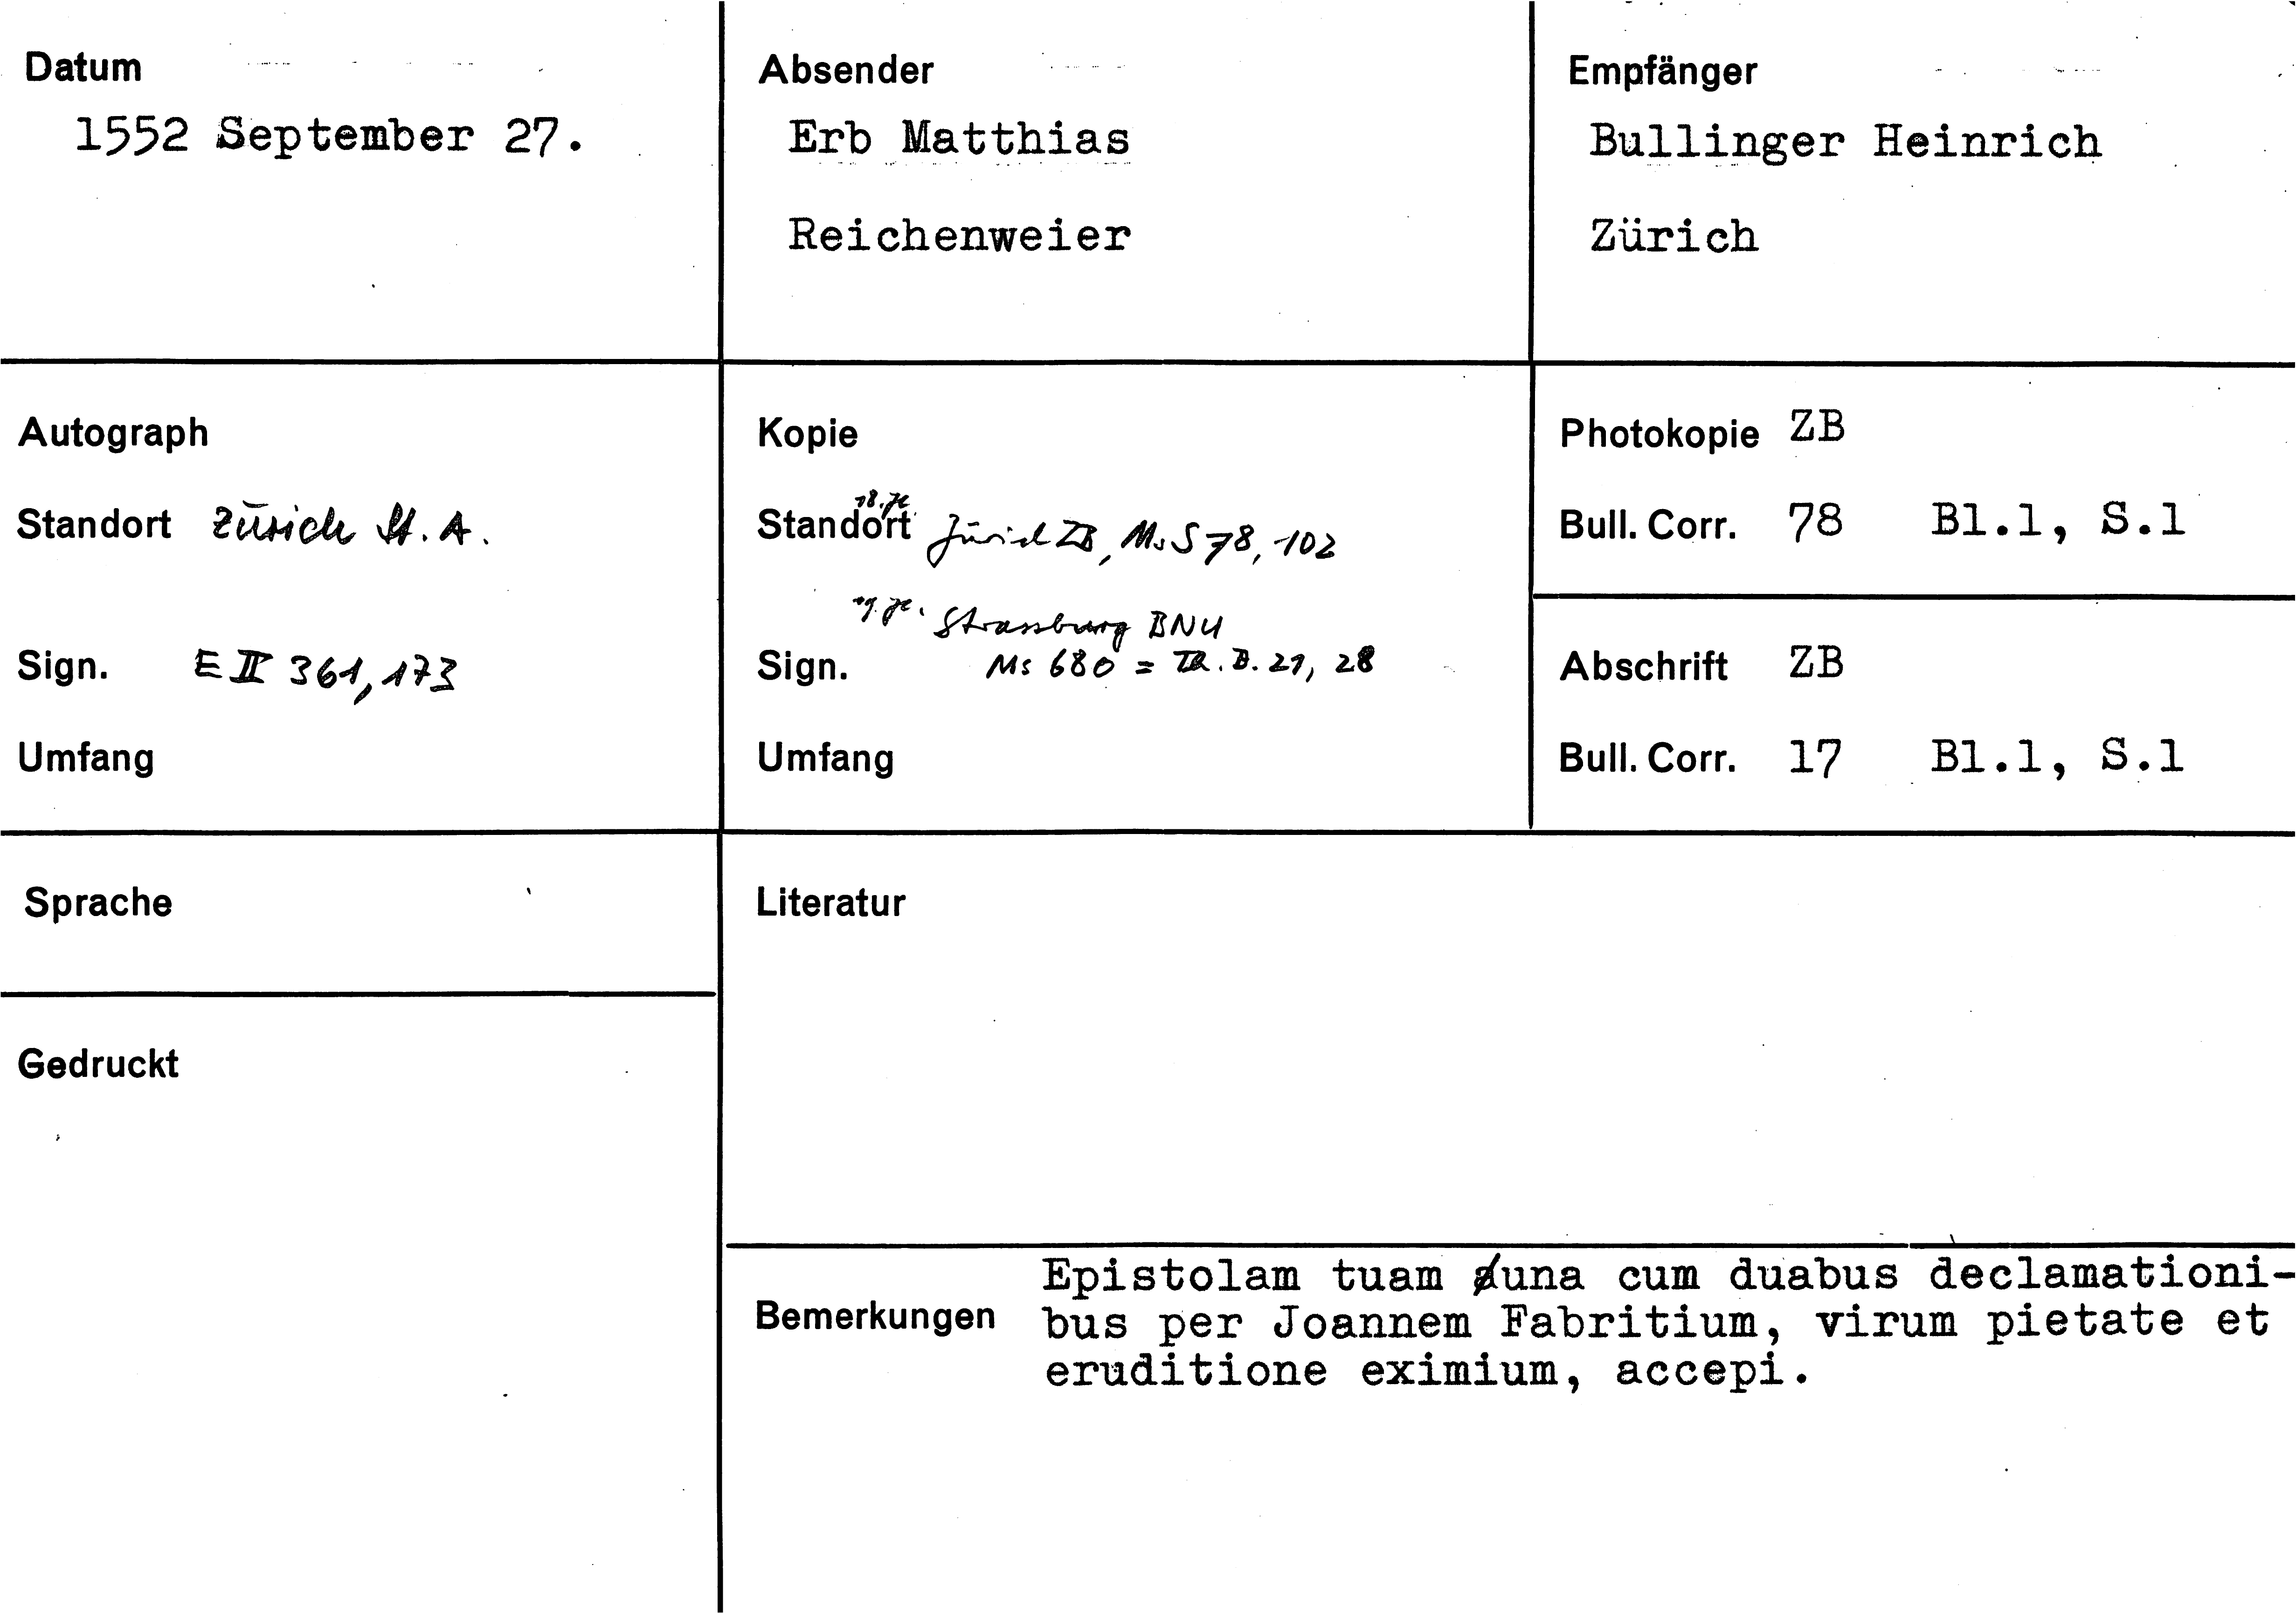 Datum
1552 September 27.
Absender
Erb Matthias
Reichenweier
Empfänger
Bullinger Heinrich
Zürich
Autograph
Standort Zürich St. A.
Sign. E II 361, 173
Umfang
Kopie
18. Jh.
Standort Zürich ZB, Ms S 78, 102
19. Jh. Strassburg BNU
Sign. Ms 680 = TR. B. 21, 28
Umfang
Photokopie ZB
Bull. Corr. 78 Bl.1, S.1
Abschrift ZB
Bull. Corr. 17 Bl.1, S.1
Sprache
Gedruckt
Literatur
Bemerkungen
Epistolam tuam una cum duabus declamationi-
bus per Joannem Fabritium, virum pietate et
eruditione eximium, accepi.